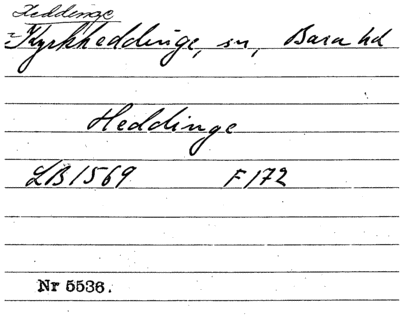 Heddinge
Kyrkheddinge, sn, Bara hd
Heddinge
LB 1569 F 172
Nr 5536.